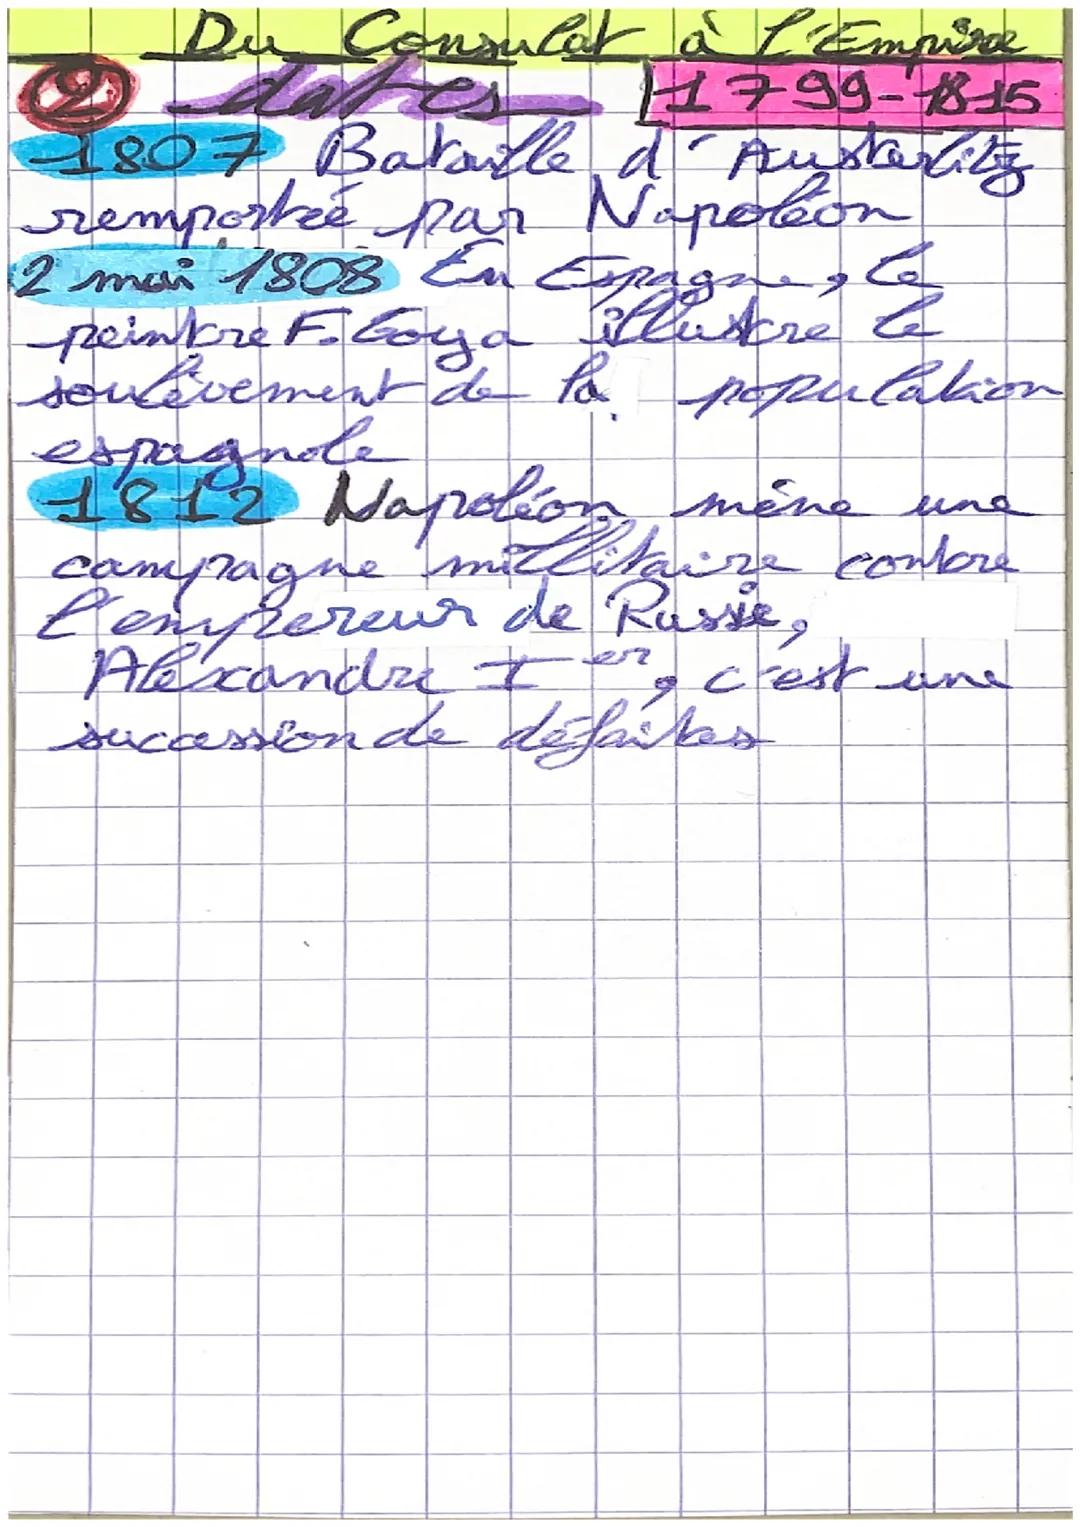 Du Consulat à l'Empire
② dates 1799-1815
1807 Bataille d'Austerlitz
remportée par Napoléon
2 mai 1808 En Espagne, le
peintre F. Goya illustre le
soulèvement de la population
espagnole
1812 Napoléon mène une
campagne millitaire contre
l'empereur de Russie,
Alexandre Ier, c'est une
sucession de défaites